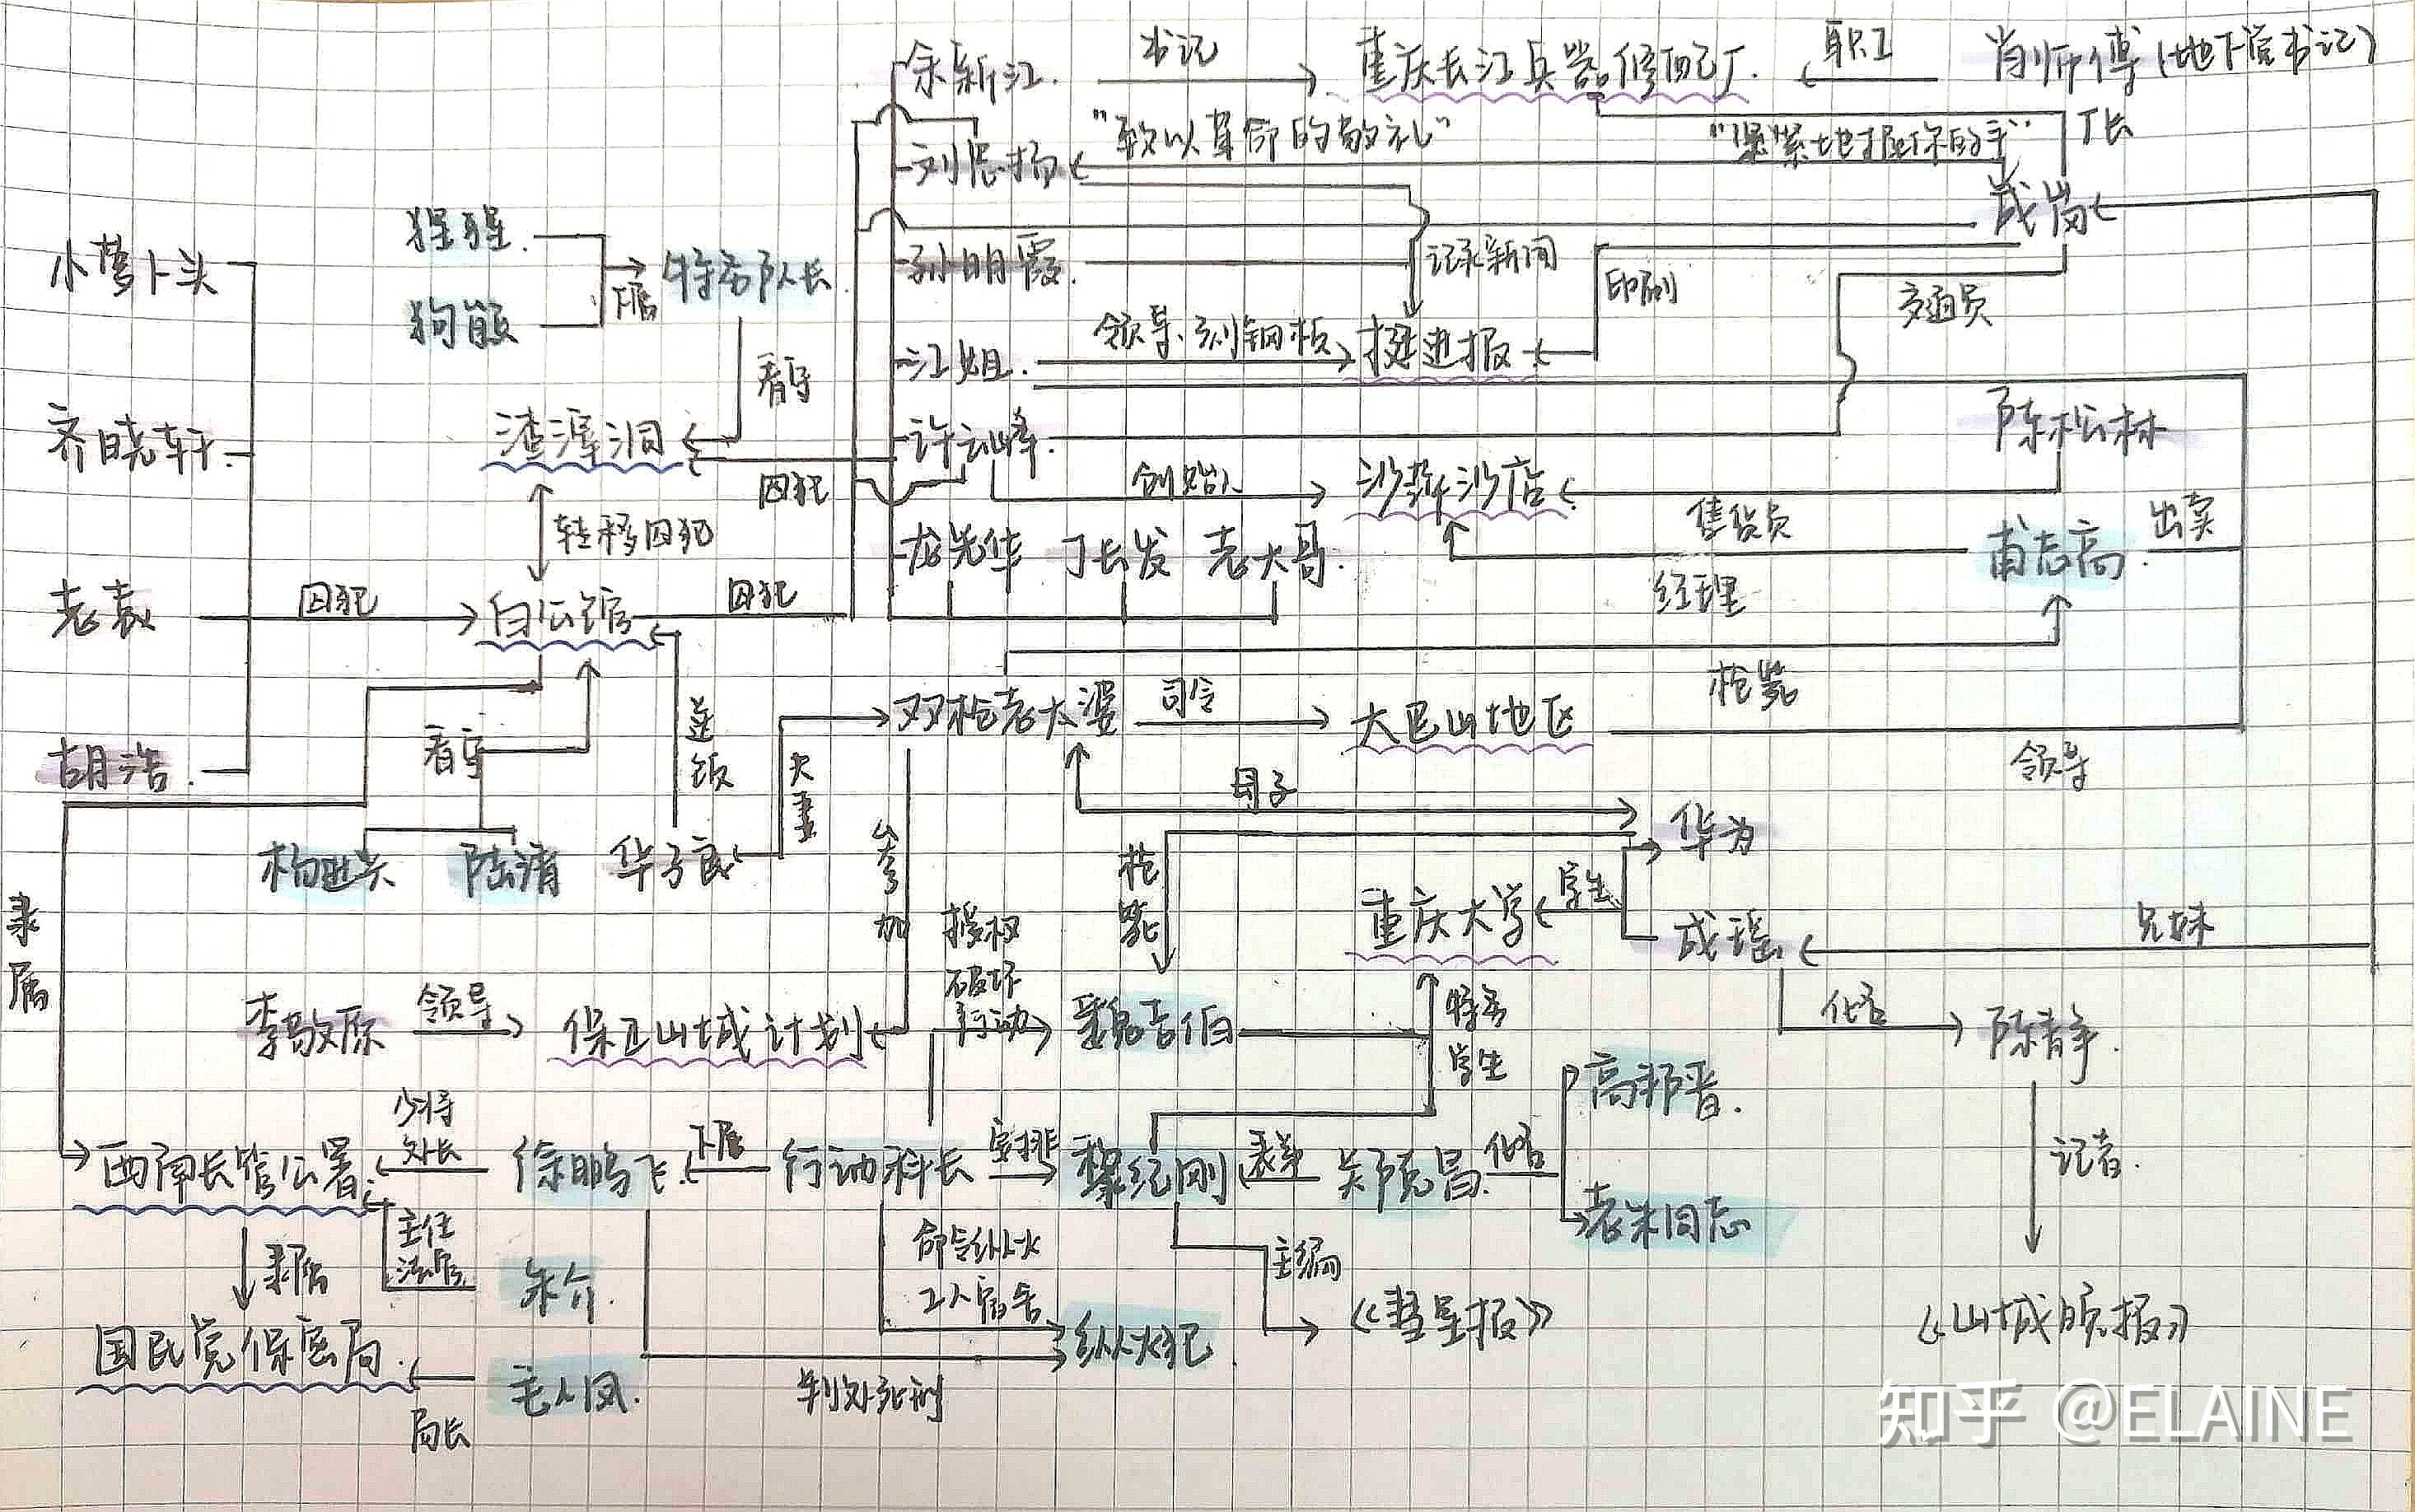 余新江
书记
重庆长江兵器修配厂
职工
肖师傅(地下党书记)
刘思扬
"致以革命的敬礼"
"紧紧地握你的手"
厂长
成岗
小萝卜头
猩猩
狗熊
下属
特务队长
孙明霞
记录新闻
印刷
交通员
江姐
领导、刻钢板
挺进报
齐晓轩
渣滓洞
看守
囚犯
许云峰
创始人
沙坪沙店
陈松林
售货员
转移囚犯
龙光华 丁长发 老大哥
经理
甫志高
出卖
老袁
囚犯
白公馆
囚犯
枪毙
双枪老太婆
司令
大巴山地区
领导
胡浩
看守
送饭
夫妻
母子
华为
杨进兴
陆清
华子良
参加
枪毙
重庆大学
学生
成瑶
兄妹
隶属
李敬原
领导
保卫山城计划
授权
破坏
行动
魏吉伯
特务
学生
化名
陈静
高邦晋
西南长官公署
少将
处长
徐鹏飞
下属
行动科长
安排
黎纪刚
表弟
郑克昌
化名
老朱同志
记者
隶属
主任
法官
朱介
命令纵火
工人宿舍
主编
《彗星报》
《山城晚报》
国民党保密局
局长
毛人凤
判处死刑
纵火犯
知乎 @ELAINE